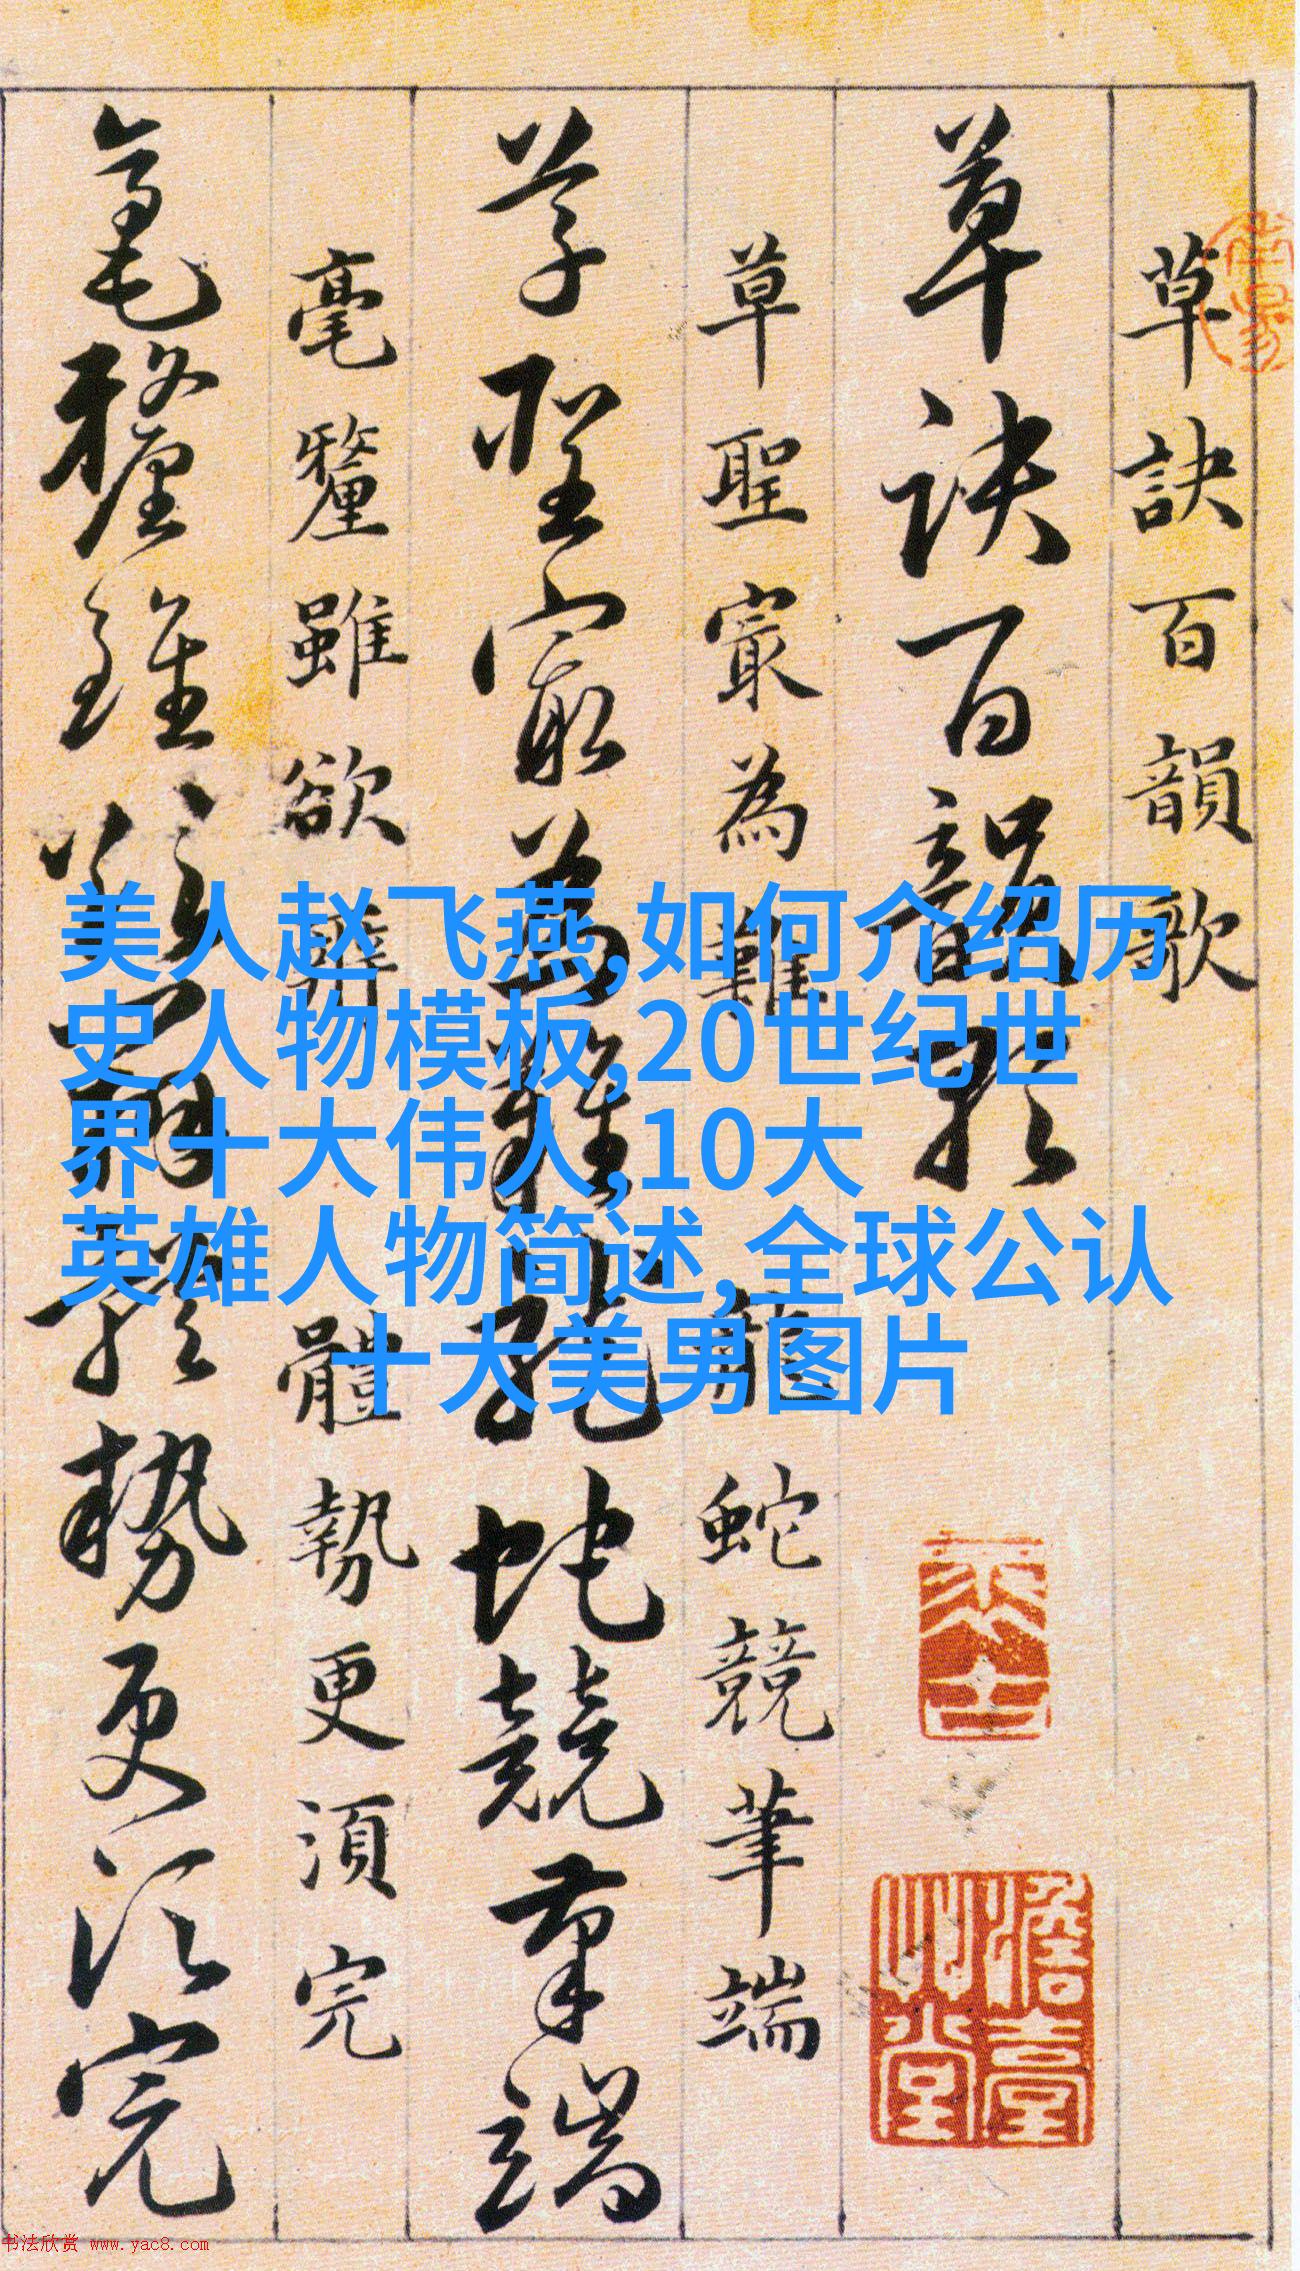 草訣百韻歌
草訣百韻歌
草聖㝡為難龍蛇競筆端
草聖㝡為難龍蛇競筆端
毫釐雖欲辨體勢更須完
毫釐雖欲辨體勢更須完
美人赵飞燕,如何介绍历
史人物模板,20世纪世
界十大伟人,10大
英雄人物简述,全球公认
十大美男图片
书法欣赏 www.yac8.com